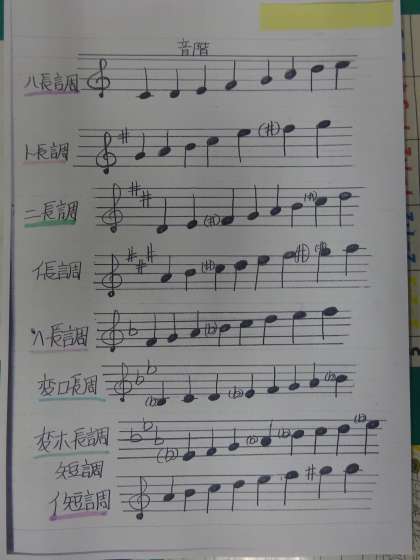 音階
ハ長調
ト長調
ニ長調
イ長調
ヘ長調
変ロ長周
変ホ長調
短調
イ短調